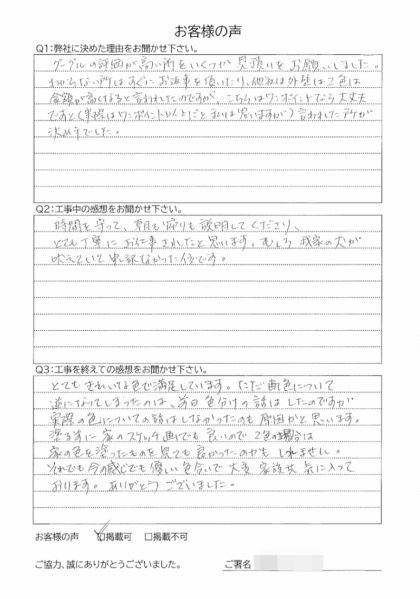 お客様の声
Q1:弊社に決めた理由をお聞かせ下さい。
グーグルの評価が高い所をいくつか見積りをお願いしました。
わからない所はすぐにお返事を頂いたり、他社は外壁は2色は
金額が高くなると言われたのですが、こちらはワンポイントなら大丈夫
ですと(実際はワンポイント以上だと私は思いますが)言われた所が
決め手でした。
Q2:工事中の感想をお聞かせ下さい。
時間を守って、朝も帰りも説明してくださり、
とても丁寧にお仕事されたと思います。むしろ我家の犬が
吠えていて申し訳なかった位です。
Q3:工事を終えての感想をお聞かせ下さい。
とてもきれいな色で満足しています。ただ配色について
逆になってしまったのは、前日色分けの話はしたのですが
実際の色についての話はしなかったのも原因かと思います。
塗る前に家のスケッチ画でも良いので2色の場合は
家の色を塗ったものを見ても良かったのかもしれません。
それでも今の感じでも優しい色合いで大変家族共気に入って
おります。ありがとうございました。
お客様の声 ☑掲載可 □掲載不可
ご協力、誠にありがとうございました。 ご署名